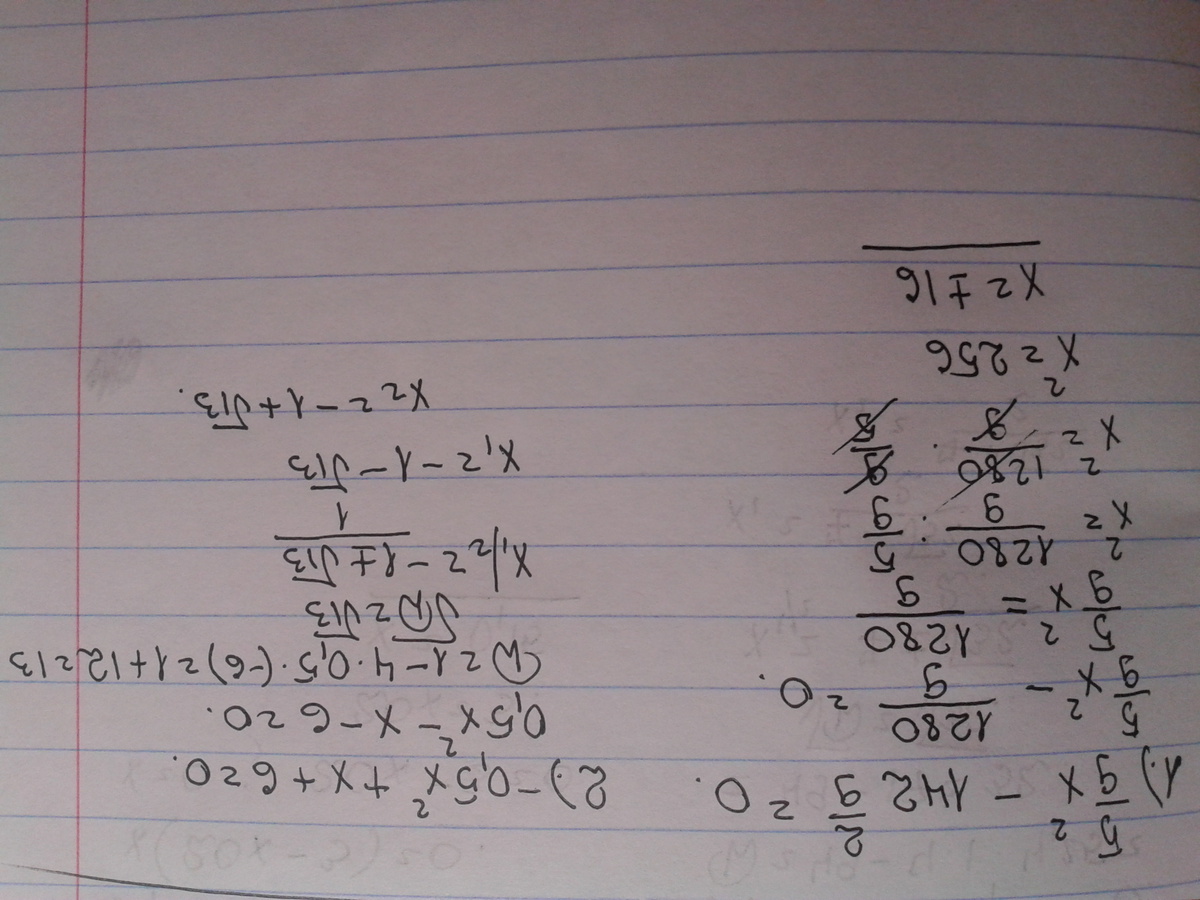 1.) 5/9 x² − 142 2/9 = 0.
5/9 x² − 1280/9 = 0.
5/9 x² = 1280/9
x² = 1280/9 : 5/9
x² = 1280/9 · 9/5
x² = 256
x = ±16
2.) −0,5x² + x + 6 = 0.
0,5x² − x − 6 = 0.
D = 1 − 4 · 0,5 · (−6) = 1 + 12 = 13
√D = √13
x1/2 = −1 ± √13 / 1
x1 = −1 − √13
x2 = −1 + √13.